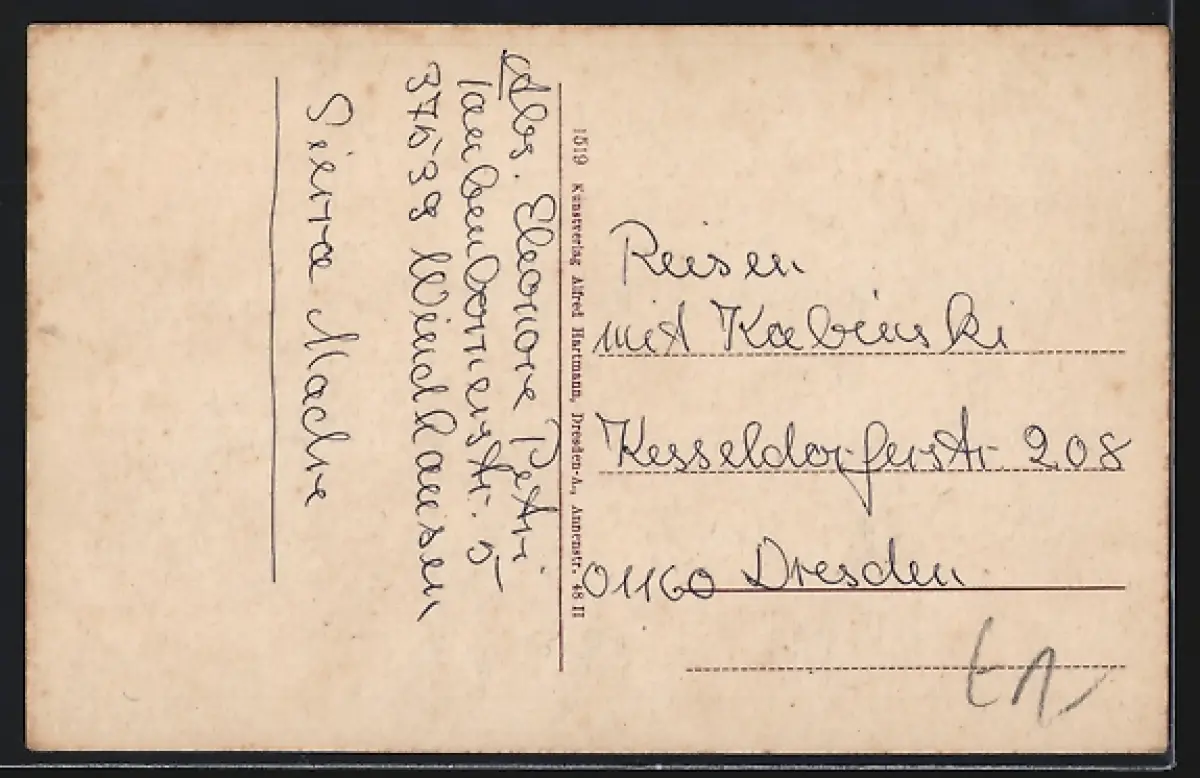 Abs. Eleonore Petri
Taubenbornerstr. 5
37639 Windhausen
Sierra Madre
1519 Kunstverlag Alfred Hartmann, Dresden-A., Annenstr. 48 II
Reisen
mit Kabinski
Kesseldorferstr. 208
01160 Dresden